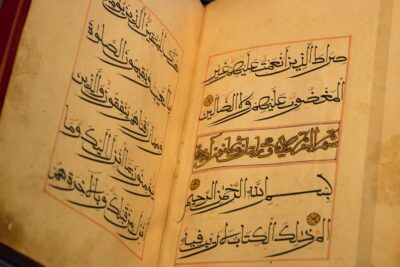 صراط الذين أنعمت عليهم غير
المغضوب عليهم ولا الضالين
سورة البقرة
بسم الله الرحمن الرحيم
الم ذلك الكتاب لا ريب فيه
هدى للمتقين الذين يؤمنون
بالغيب ويقيمون الصلوة
ومما رزقناهم ينفقون والذين
يؤمنون بما انزل اليك وما
انزل من قبلك وبالاخرة هم